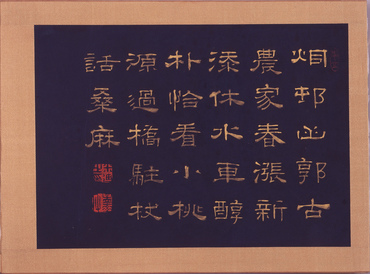 烟邨山郭古
農家春漲新
添休水車醇
朴恰看小桃
源過橋駐杖
話桑麻